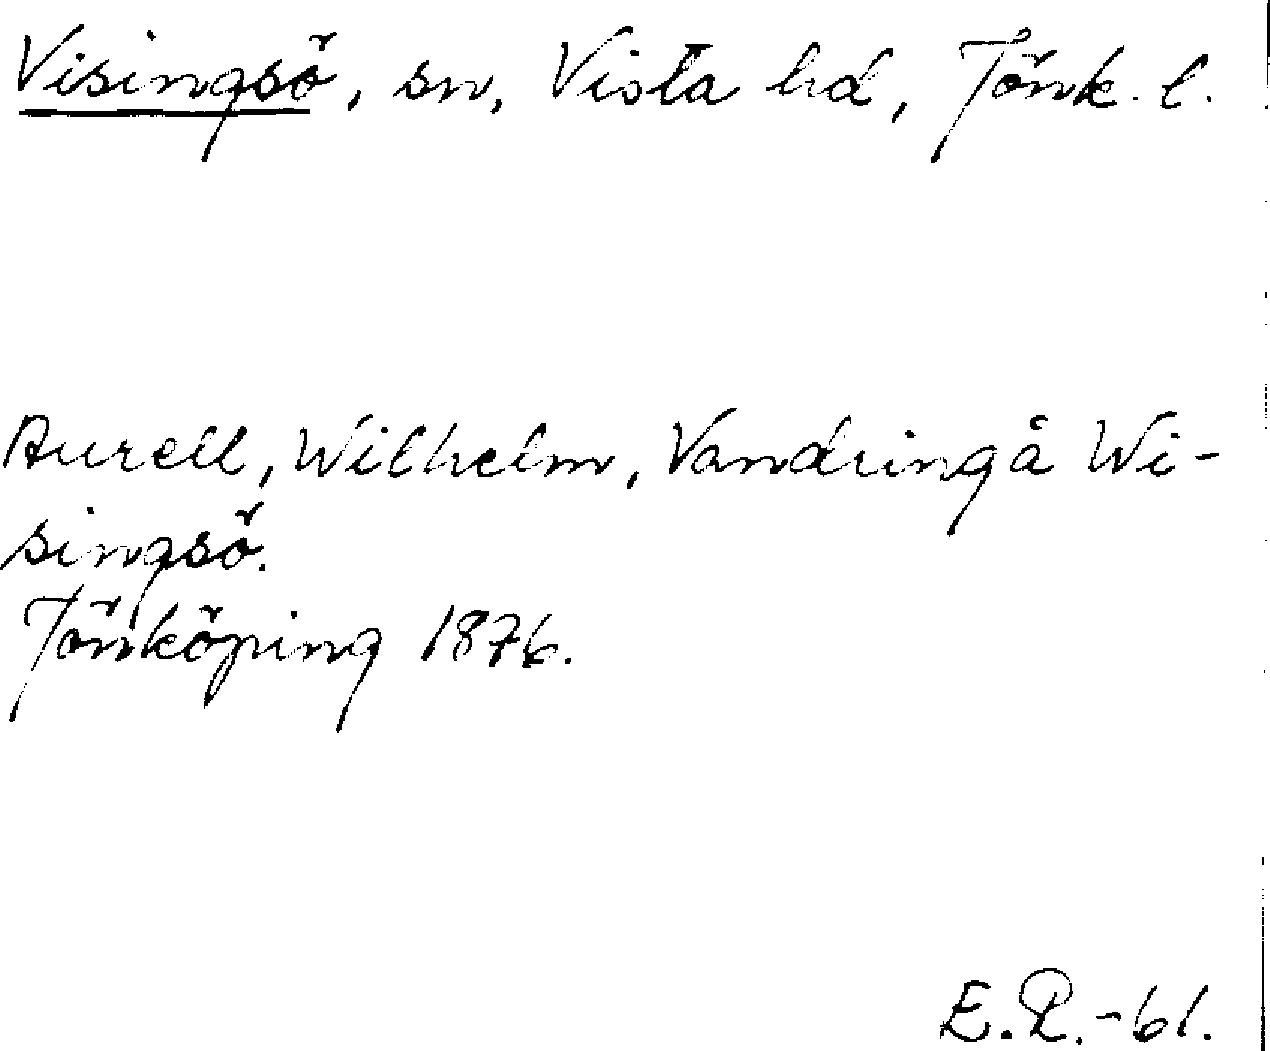 Visingsö, sn, Vista hd, Jönk. l.
Aurell, Wilhelm, Vandring å Wi-
singsö.
Jönköping 1876.
E.R.-61.